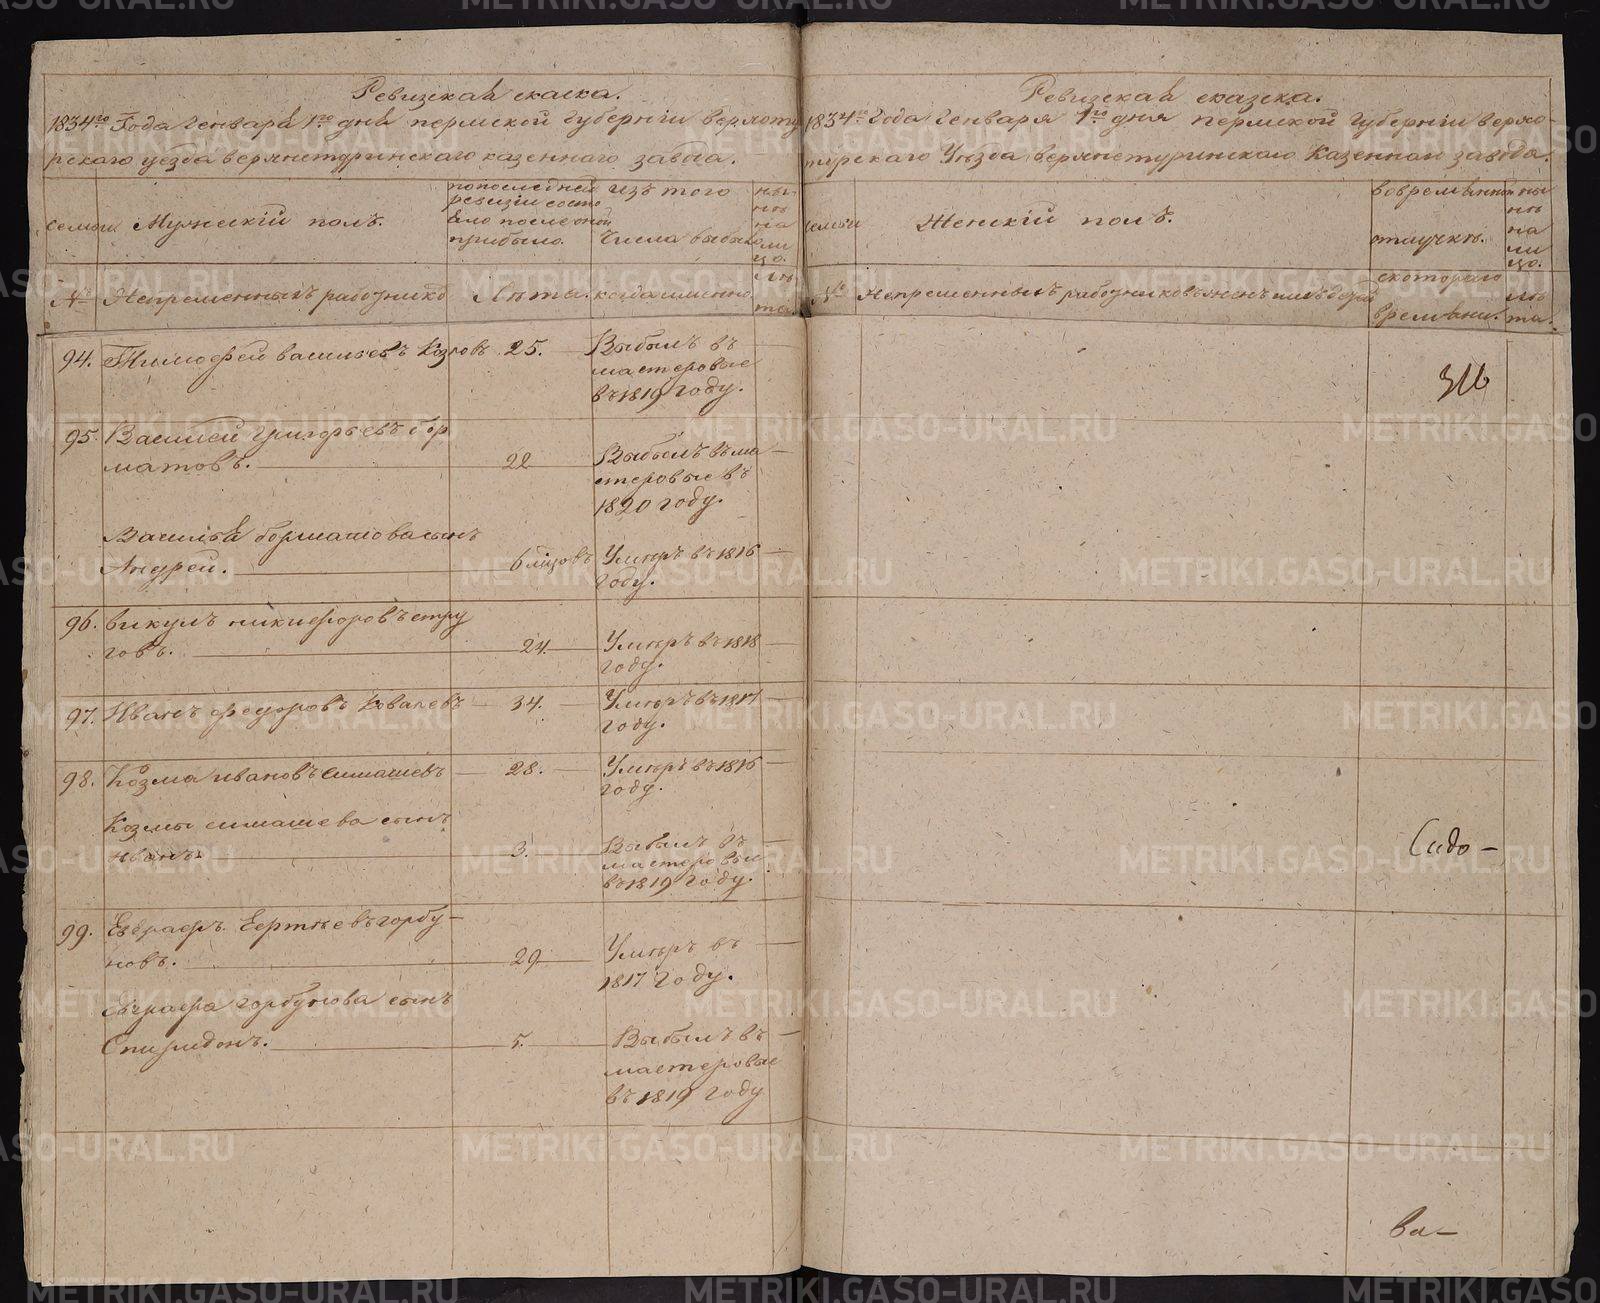 Ревизская скаска.
1834го Года Генваря 1го дня пермской губернiи верхоту
рскаго уезда верхнетуринскаго казеннаго завода.
семьи
Мужескiй полъ.
попоследней
ревизiи состо
яло после оной
прибыло.
Изъ того
числа выбыло
ны
нѣ
на
ли
цо.
№
Непременныхъ работнико
Лѣта.
когда именно.
лѣ
та.
94. Тимофей васильевъ Козловъ 25. Выбылъ въ
мастеровые
въ 1819 году.
95. Василей григорьевъ бор
матовъ. 22 Выбылъ въ ма
стеровые въ
1820 году.
Василья борматова сынъ
Андрей. 6 мцовъ Умеръ въ 1816
году.
96. викулъ никифоровъ стру
говъ. 24. Умеръ въ 1818
году.
97. Иванъ федоровъ Ковалевъ 34. Умеръ въ 1817
году.
98. Козма ивановъ симашевъ 28. Умеръ въ 1816
году.
Козмы симашева сынъ
иванъ. 3. Выбылъ въ
мастеровые
въ 1819 году.
99. Евграфъ горбу
новъ. 29 Умеръ въ
1817 году.
Евграфа горбунова сынъ
Спиридонъ. 5. Выбылъ въ
мастеровые
въ 1819 году
Ревизская сказска.
1834го Года Генваря 1го дня пермской Губернiи верхо
турскаго Уѣзда верхнетуринскаго Казеннаго завода.
семьи
Женскiй полъ.
вовременной
отлучкѣ.
ны
нѣ
на
ли
цо.
№
Непременныхъ работниковъ
скотораго
времѣни.
лѣ
та.
316
Сидо-
ва-
METRIKI.GASO-URAL.RU